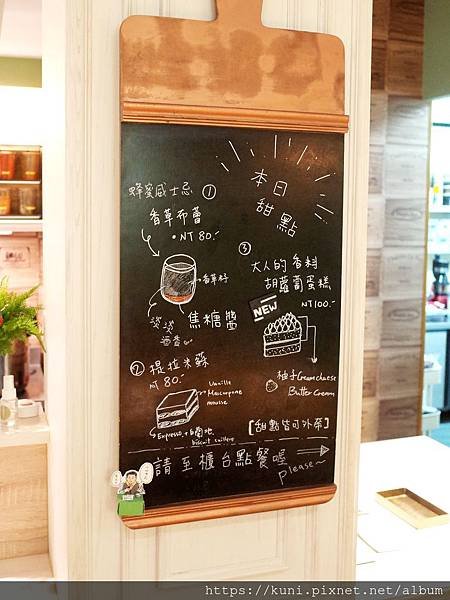 本日
甜點
蜂蜜威士忌 ①
香草布蕾
• NT 80.-
香草籽
焦糖醬
淡淡
酒香
② 提拉米蘇
NT 80.-
Vanilla
Marcapone
mousse
Espresso +白蘭地
biscuit cuillere
③
大人的香料
胡蘿蔔蛋糕
NEW
NT100.-
柚子Creamcheese
Butter Cream
[甜點皆可外帶]
請至櫃台點餐喔
please~
https://kuni.pixnet.net/album